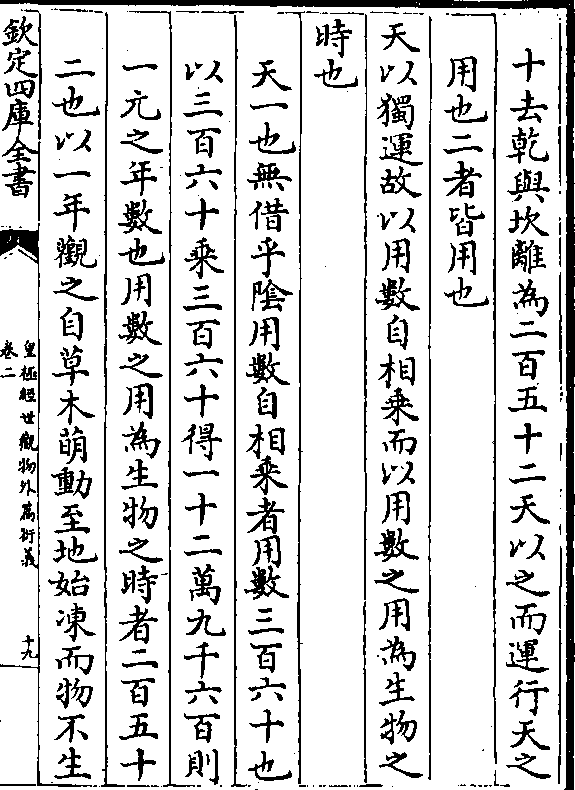 十去乾與坎離為二百五十二天以之而運行天之
用也二者皆用也
天以獨運故以用數自相乘而以用數之用為生物之
時也
天一也無借乎陰用數自相乘者用數三百六十也
以三百六十乘三百六十得一十二萬九千六百則
一元之年數也用數之用為生物之時者二百五十
二也以一年觀之自草木萌動至地始凍而物不生
欽定四庫全書
皇極經世觀物外篇衍義
卷二
十九